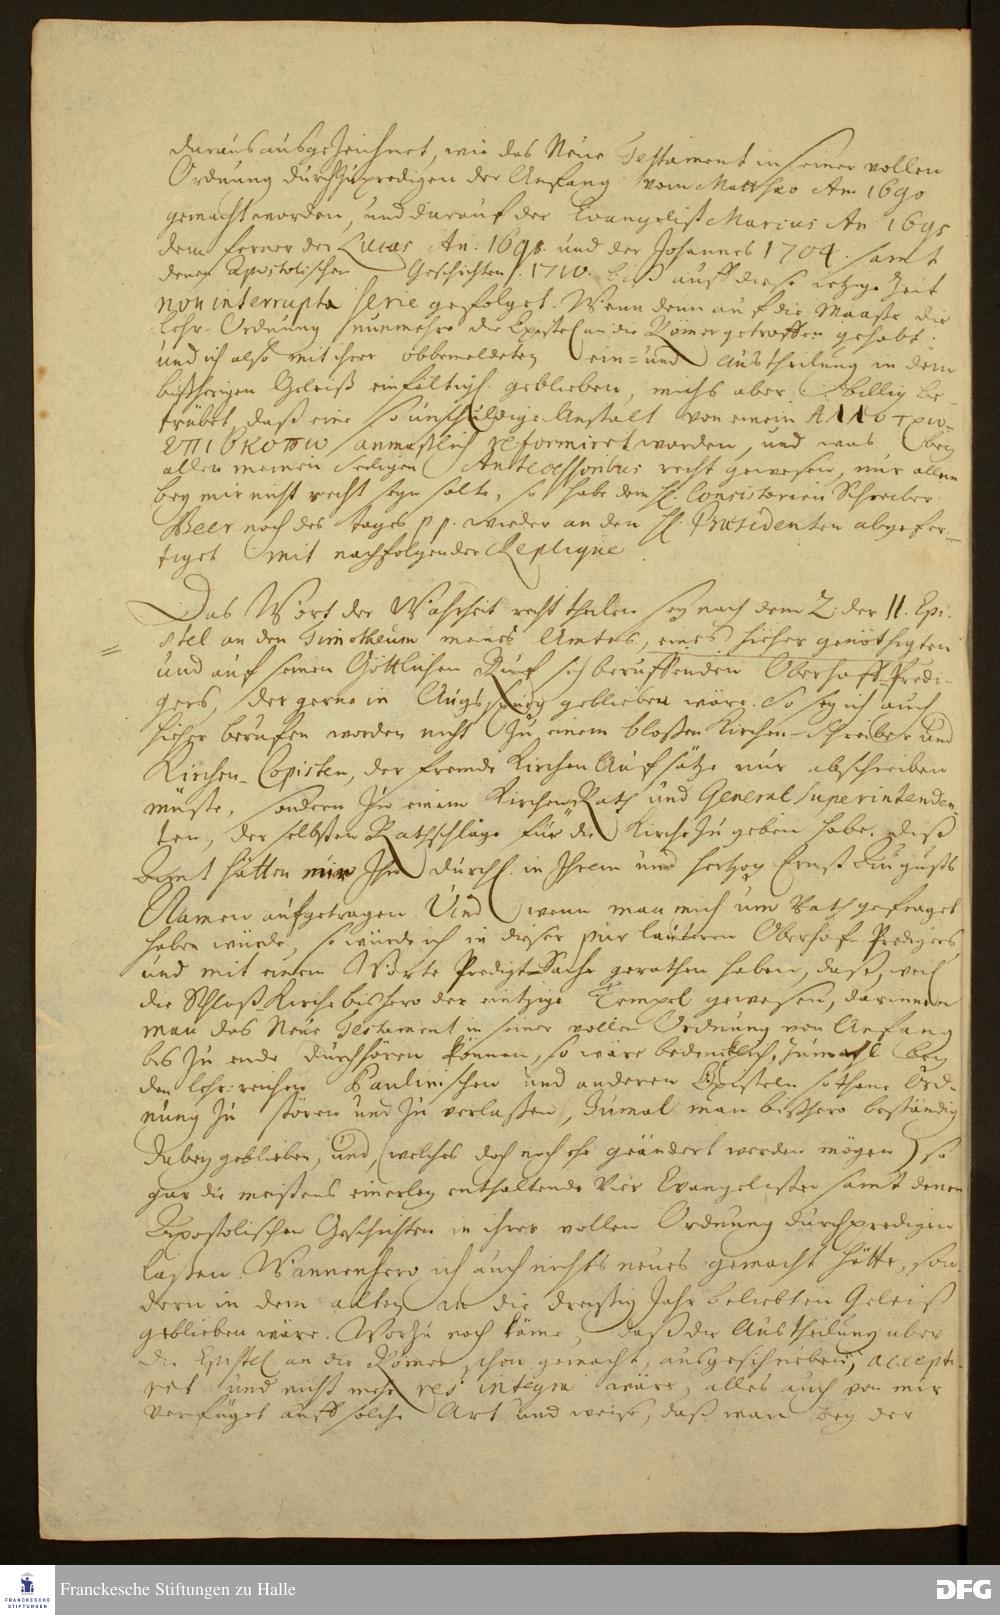 daraus ausgezeichnet, wie das Neue Testament in seiner vollen
Ordnung durchzupredigen der Anfang vom Matthäo An 1690
gemacht worden, und darauf der Evangelist Marcus An 1695
dem ferner der Lucas An. 1698. und der Johannes 1704. samt
denen Apostolischen Geschichten 1710. biß auff diese ietzge Zeit
non interrupta serie gefolget. Wenn denn auf die Maaße die
Lehr-Ordnung nunmehro die Epistel an die Römer getroffen gehabt:
und ich also mit ihrer obbemeldeten ein- und austheilung in dem
bißherigen Geleiß einfältigl. geblieben, michs aber billig be-
trübet, daß eine so unschuldige Anstalt von einem ΑΛΛΟΤΡΙΟ-
επισκοπω anmaßlich reformiret worden, und was bey
allen meinen seeligen Antecessoribus recht gewesen, nur allein
bey mir nicht recht seyn solte, so habe dem H. Consistorien Schreiber
Beer noch des tages p p. wieder an den H. Præsidenten abgefer-
tiget mit nachfolgender Replique.
Das Wort der Wahrheit recht theilen sey nach dem 2. der II. Epi-
stel an den Timotheum meines Amtes, eines hieher genöthigten
und auf seinen Göttlichen Ruf sich beruffenden Oberhoff-Predi-
gers, der gerne in Augspurg geblieben wäre. So sey ich auch
hieher berufen worden nicht zu einem bloßen Kirchen-Schreiber und
Kirchen-Copisten, der fremde Kirchen Aufsätze nur abschreiben
müste, sondern zu einem Kirchen Rath und General Superintenden-
ten, der selbsten Rathschläge für die Kirche zu geben habe. Diß
Amt hätten mir Ihr Durchl. in Ihrem und Hertzog Ernst Augusts
Namen aufgetragen. Und wenn man mich um Rath gefraget
haben würde, so würde ich in dieser pur lauteren Oberhof-Predigers
und mit einem Worte Predigt-Sache gerathen haben, daß, weil
die Schloß-Kirche bishero der eintzige Tempel gewesen, darinnen
man das Neue Testament in seiner vollen Ordnung von Anfang
bis zu ende durchhören können, so wäre bedencklich, zumahl bey
den lehr-reichen Paulinischen und anderen Episteln sothane Ord-
nung zu stören und zu verlaßen, zumal man bißhero beständig
dabey geblieben, und, (welches doch noch ehe geändert werden mögen) so
gar die meistens einerley enthaltende Vier Evangelisten samt denen
Apostolischen Geschichten in ihrer vollen Ordnung durchpredigen
laßen. Wannenhero ich auch nichts neues gemacht hätte, son-
dern in dem alten an die dreißig Jahr beliebten Geleiß
geblieben wäre. Worzu noch käme, daß die Austheilung über
die Epistel an die Römer schon gemacht, ausgeschrieben, accepti-
ret und nicht mehr res integra wäre, alles auch von mir
verfüget auff solche Art und weise, daß man bey der
Franckesche Stiftungen zu Halle
FRANCKESCHE STIFTUNGEN
DFG